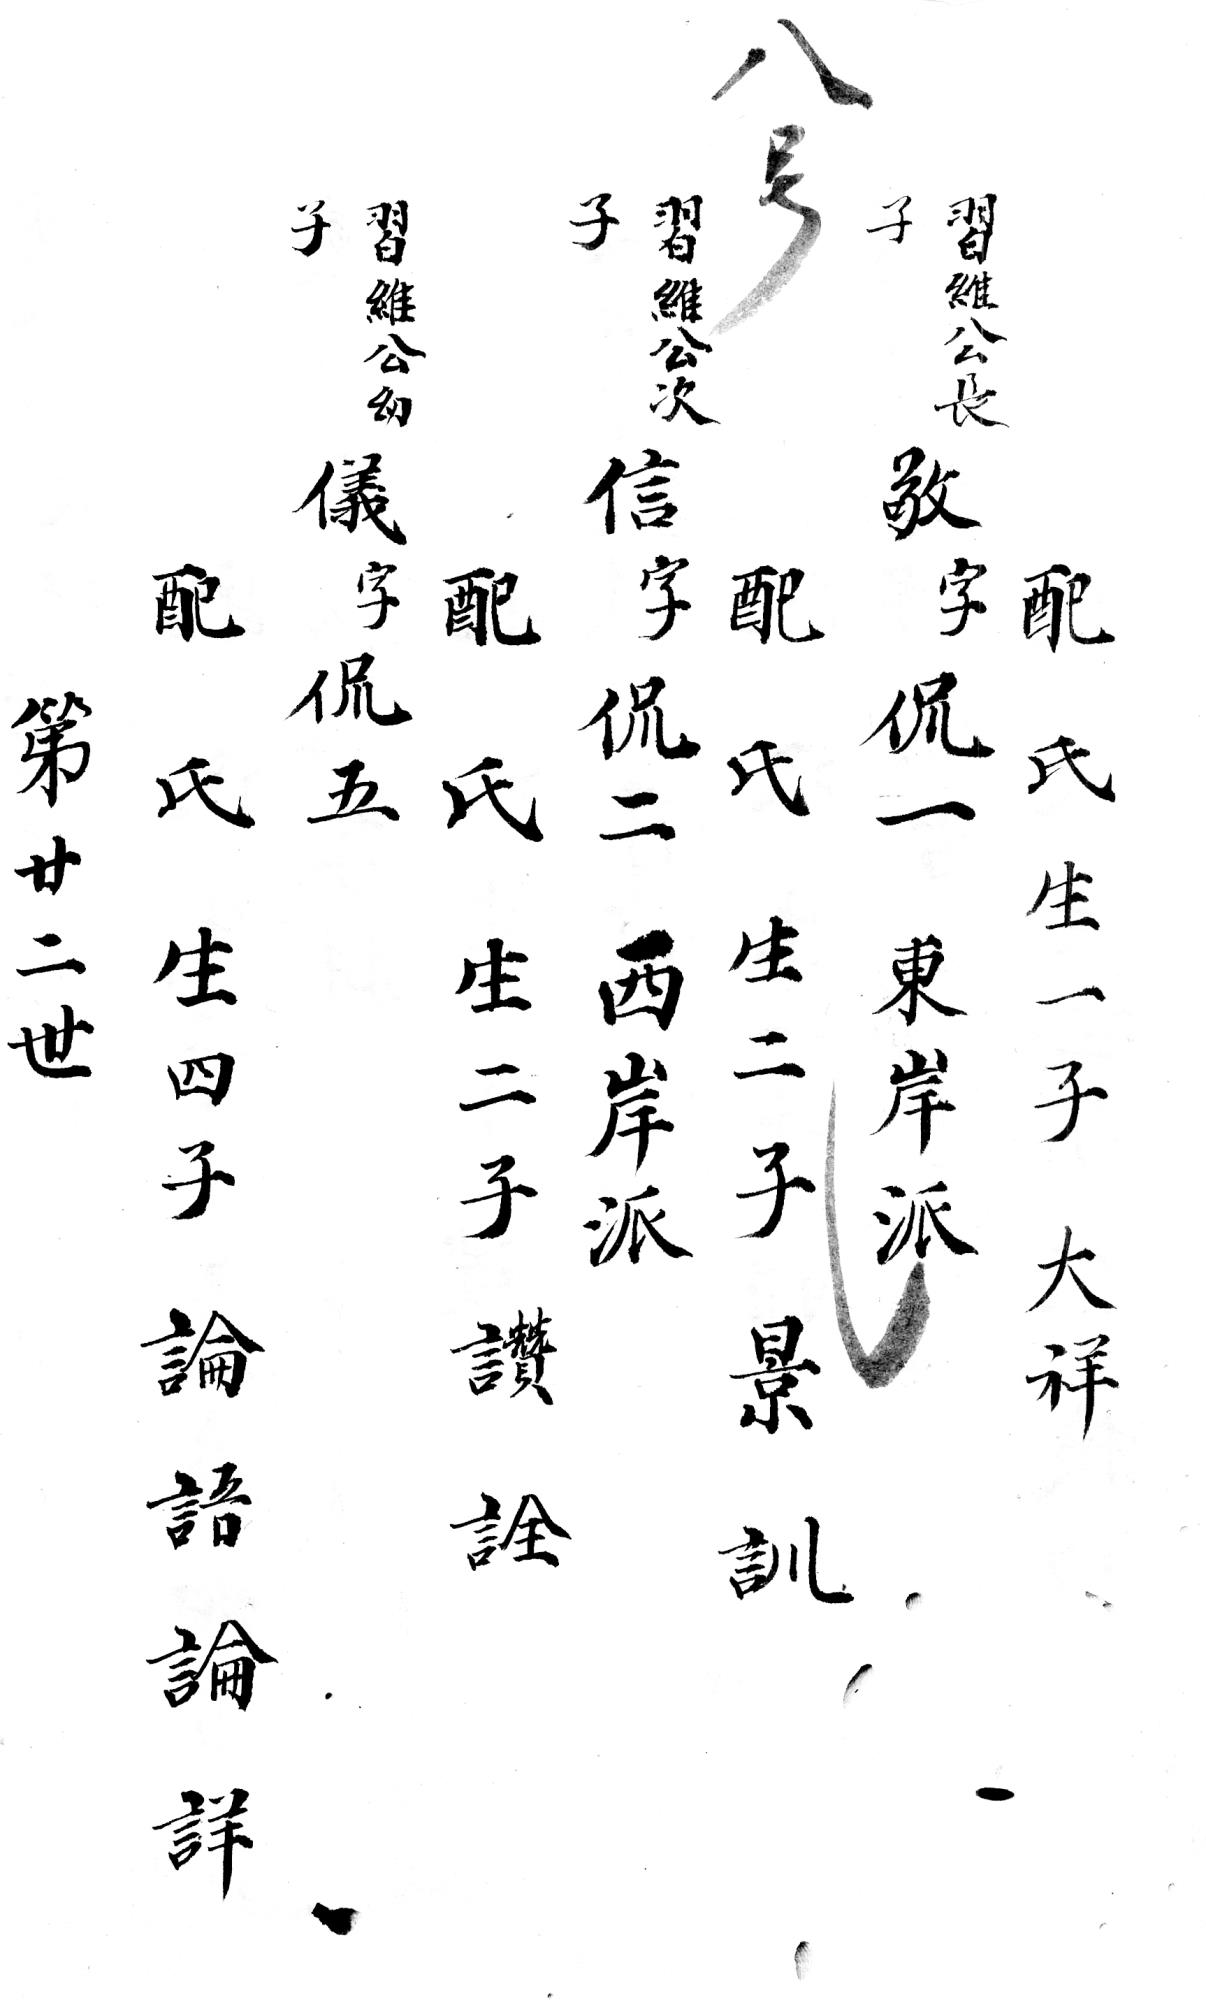 八号
配氏生一子 大祥
習維公長子 敬字侃一 東岸派
配氏 生二子 景 訓
習維公次子 信字侃二 西岸派
配氏 生二子 讚 詮
習維公幼子 儀字侃五
配氏 生四子 論 語 論 詳
第廿二世